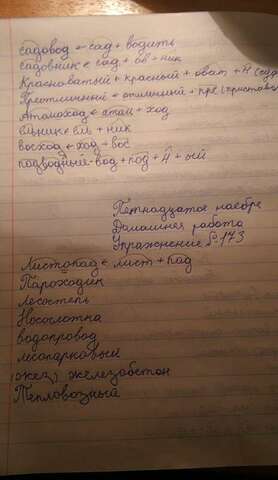 садовод ← сад + водить
садовник ← сад + ов + ник
Красноватый ← красный + оват +
Претличный ← отличный + пре (приставка
Атомоход ← атом + ход
ельник ← ель + ник
восход ← ход + вос
подводный - вод + под + н + ый
Петнадцатое ноебря
Домашнея работа
Упражнение №173
Листопад ← лист + пад
Пароходик
лесостепь
Носоглотка
водопровод
лесопарковый
железобетон
Тепловозный